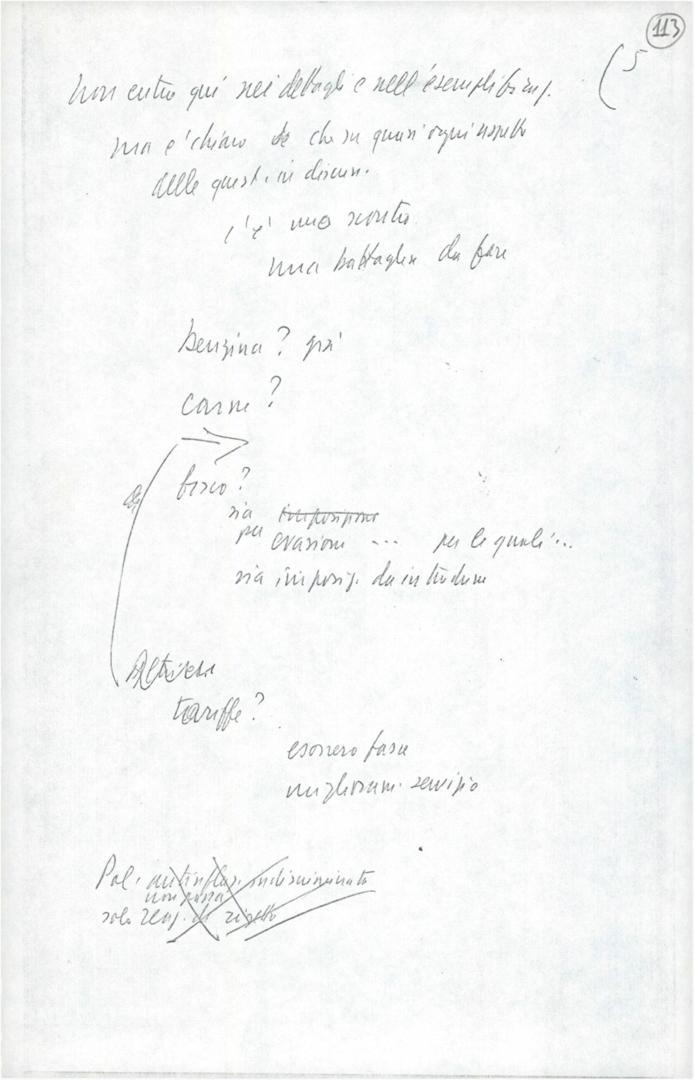 113
(5
Non entro qui nei dettagli e nell'esemplificaz.
ma e' chiaro che su quasi ogni aspetto
delle quest. in discuss.
c'è uno scontro
una battaglia da fare
benzina? già
carne?
fisco?
sia imposizione
per evasioni ... per le quali...
sia imposiz. da introdurre
Altrove
tariffe?
esonero fasce
miglioram. servizio
Pol. antinflaz. indiscriminata
non passa
solo reaz. di rigetto